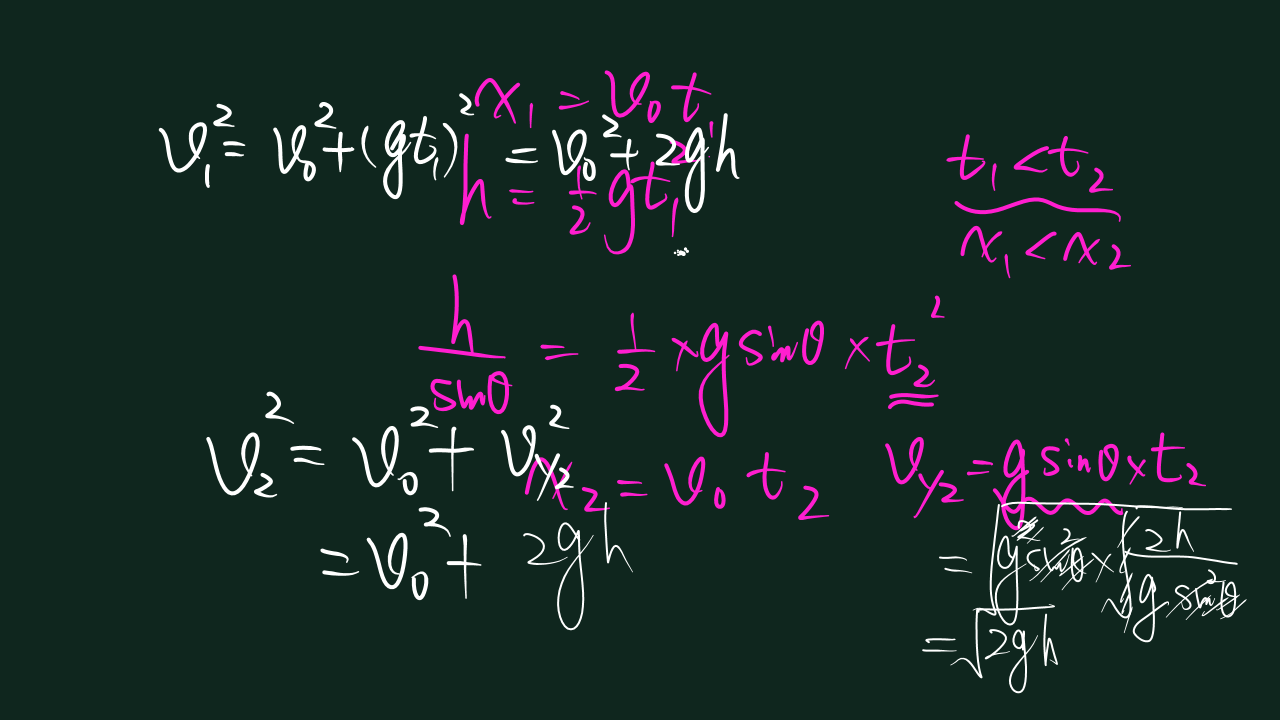 x₁ = v₀ t₁
v₁² = v₀² + (gt₁)² = v₀² + 2gh
h = 1/2 gt₁²
t₁ < t₂
x₁ < x₂
h/sinθ = 1/2 × g sinθ × t₂²
v₂² = v₀² + v_y₂²
x₂ = v₀ t₂
v_y₂ = g sinθ × t₂
= v₀² + 2gh
= √(g² sin²θ × √(2h/(g sin²θ)))
= √(2gh)